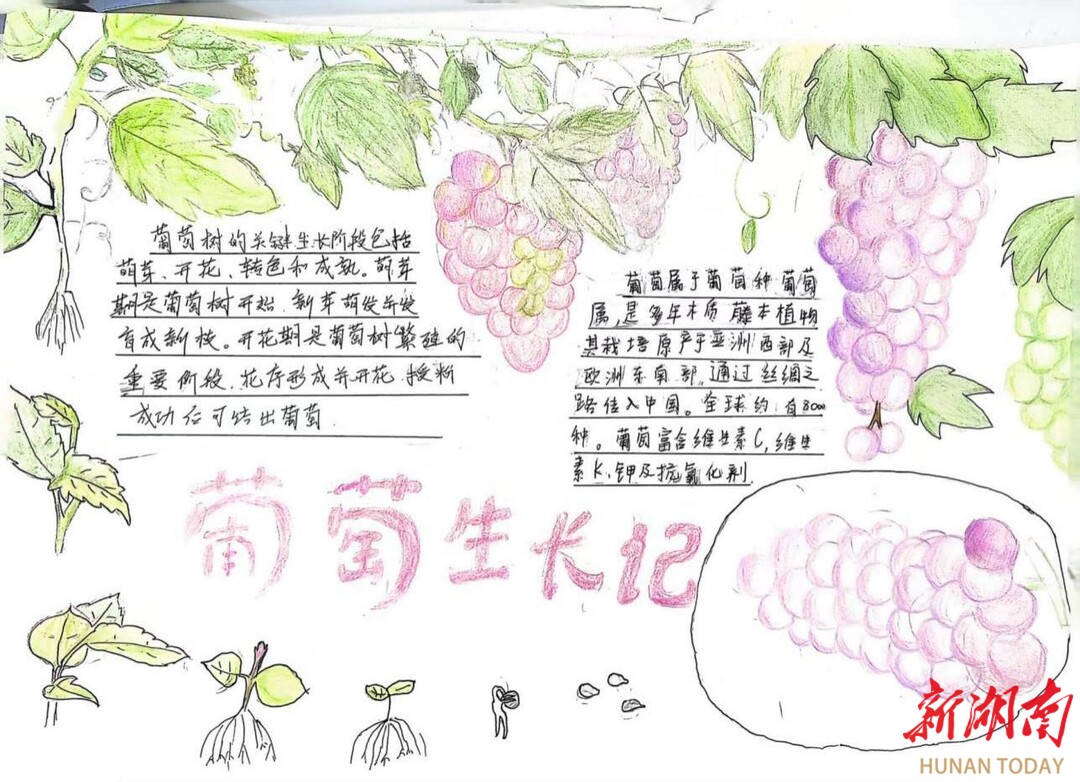 葡萄树的关键生长阶段包括
萌芽、开花、转色和成熟。萌芽
期是葡萄树开始,新芽萌发并发
育成新枝。开花期是葡萄树繁殖的
重要阶段,花序形成并开花,授粉
成功后可结出葡萄.
葡萄属于葡萄种葡萄
属,是多年木质藤本植物
其栽培原产于亚洲西部及
欧洲东南部,通过丝绸之
路传入中国。全球约有8000
种。葡萄富含维生素C,维生
素K,钾及抗氧化剂.
葡萄生长记
新湖南
HUNAN TODAY